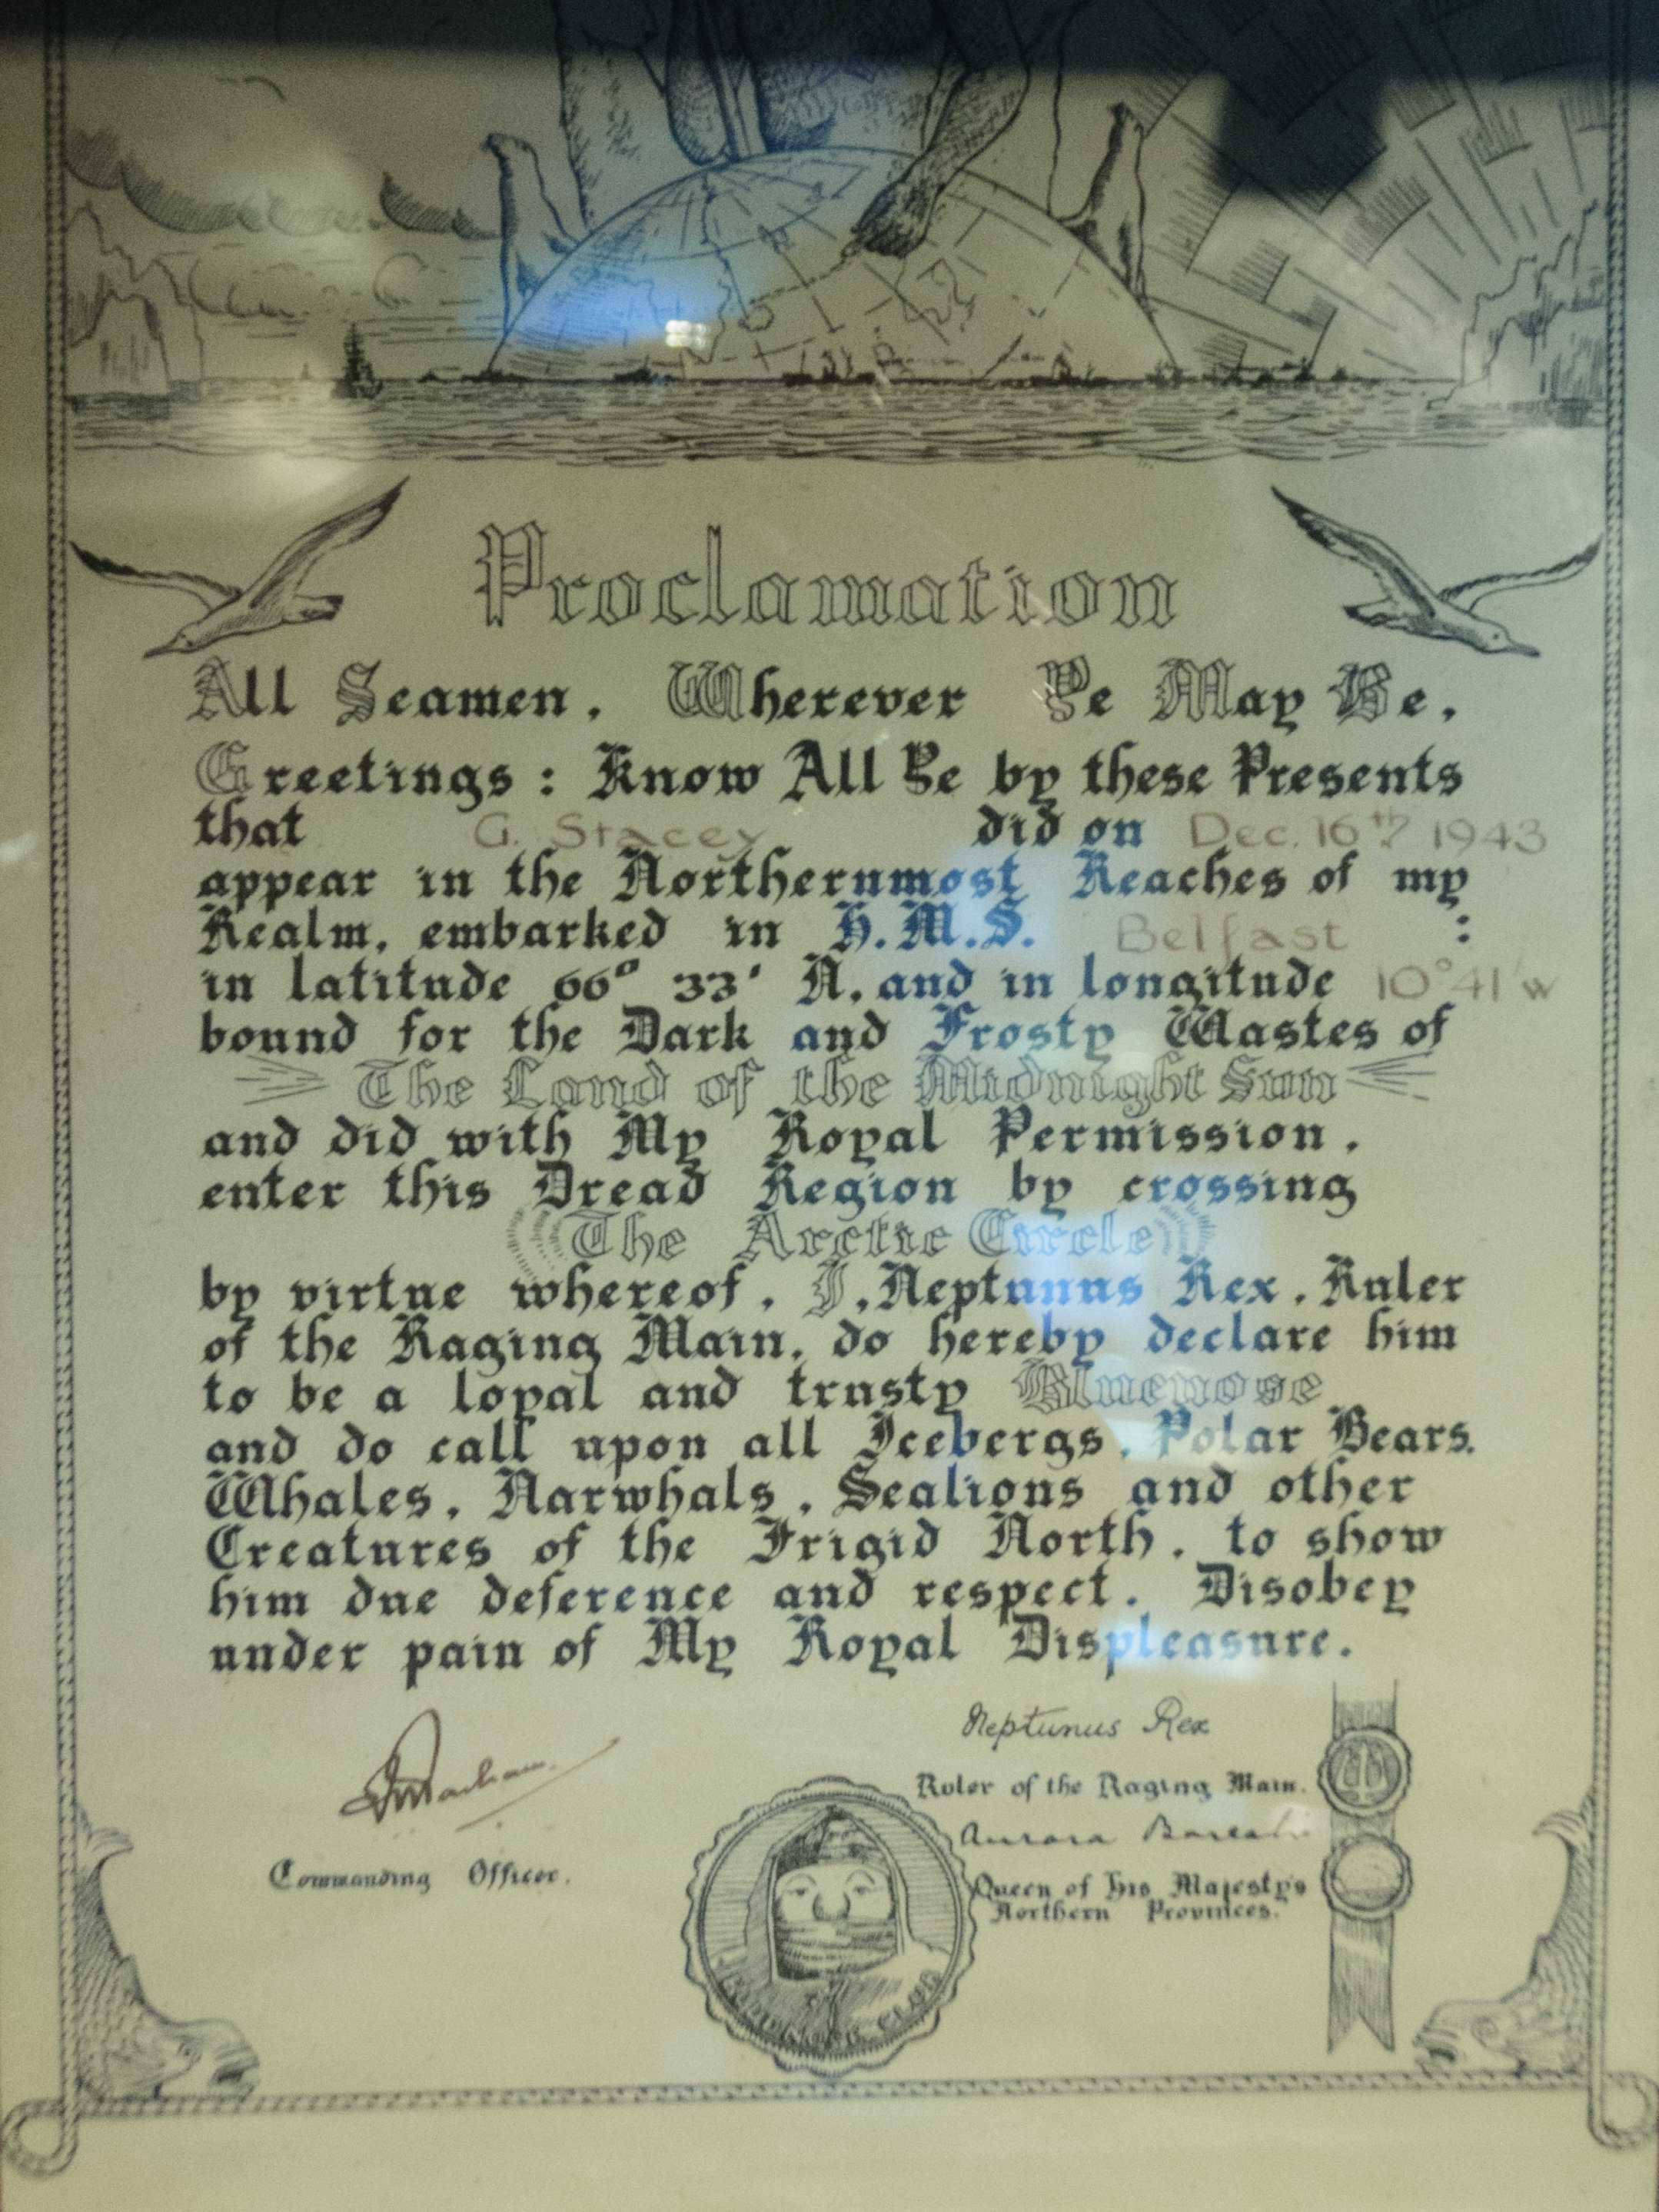 Proclamation
All Seamen, Wherever Ye May Be,
Greetings: Know All Ye by these Presents
that G. Stacey did on Dec. 16th 1943
appear in the Northernmost Reaches of my
Realm, embarked in H.M.S. Belfast :
in latitude 66° 33' N. and in longitude 10°41'w
bound for the Dark and Frosty Wastes of
The Land of the Midnight Sun
and did with My Royal Permission,
enter this Dread Region by crossing
The Arctic Circle
by virtue whereof, I, Neptunus Rex, Ruler
of the Raging Main, do hereby declare him
to be a loyal and trusty Bluenose
and do call upon all Icebergs, Polar Bears,
Whales, Narwhals, Sealions and other
Creatures of the Frigid North, to show
him due deference and respect. Disobey
under pain of My Royal Displeasure.
Neptunus Rex
Ruler of the Raging Main.
Aurora
Commanding Officer.
Queen of his Majesty's
Northern Provinces.